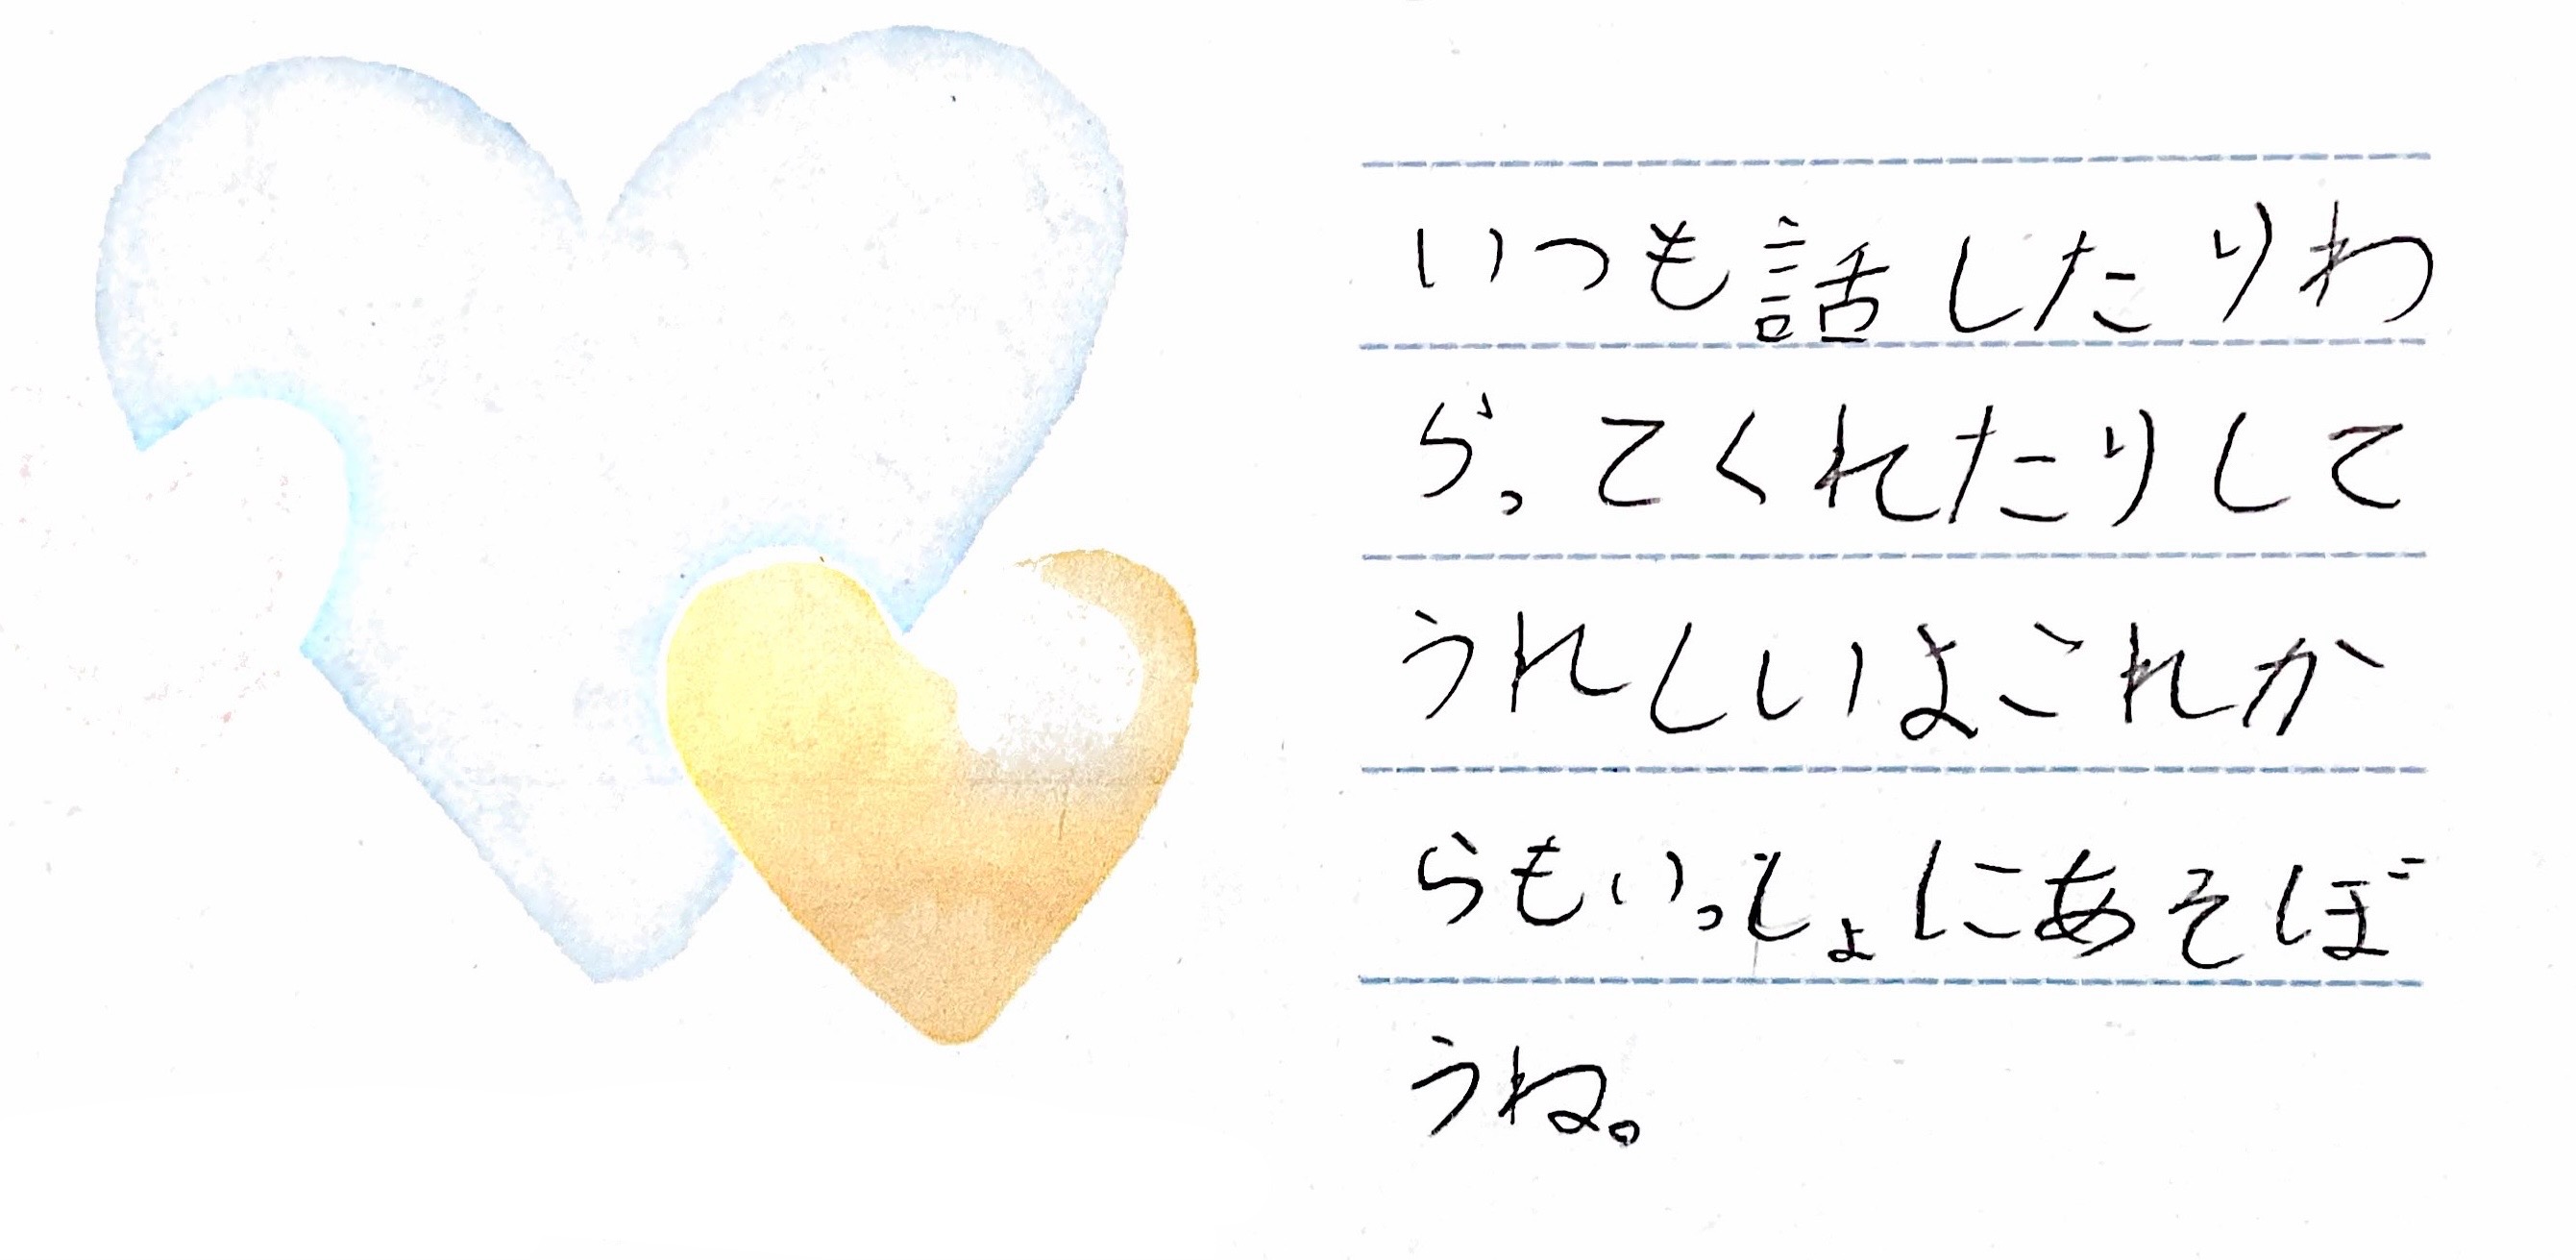 いつも話したりわ
らってくれたりして
うれしいよこれか
らもいっしょにあそぼ
うね。